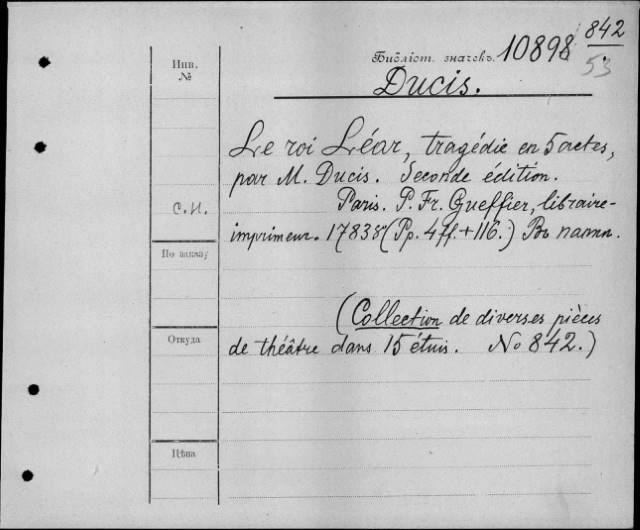 Библіот. значекъ. 10898 842
53
Ducis.
Инв.
№
Le roi Léar, tragédie en 5 actes,
par M. Ducis. Seconde édition.
С.И. Paris. P. Fr. Gueffier, libraire-
imprimeur. 1783 8° (Pp. 4 ff. + 116.) Въ папк.
По заказу
(Collection de diverses pièces
Откуда
de théâtre dans 15 étuis. No 842.)
Цѣна